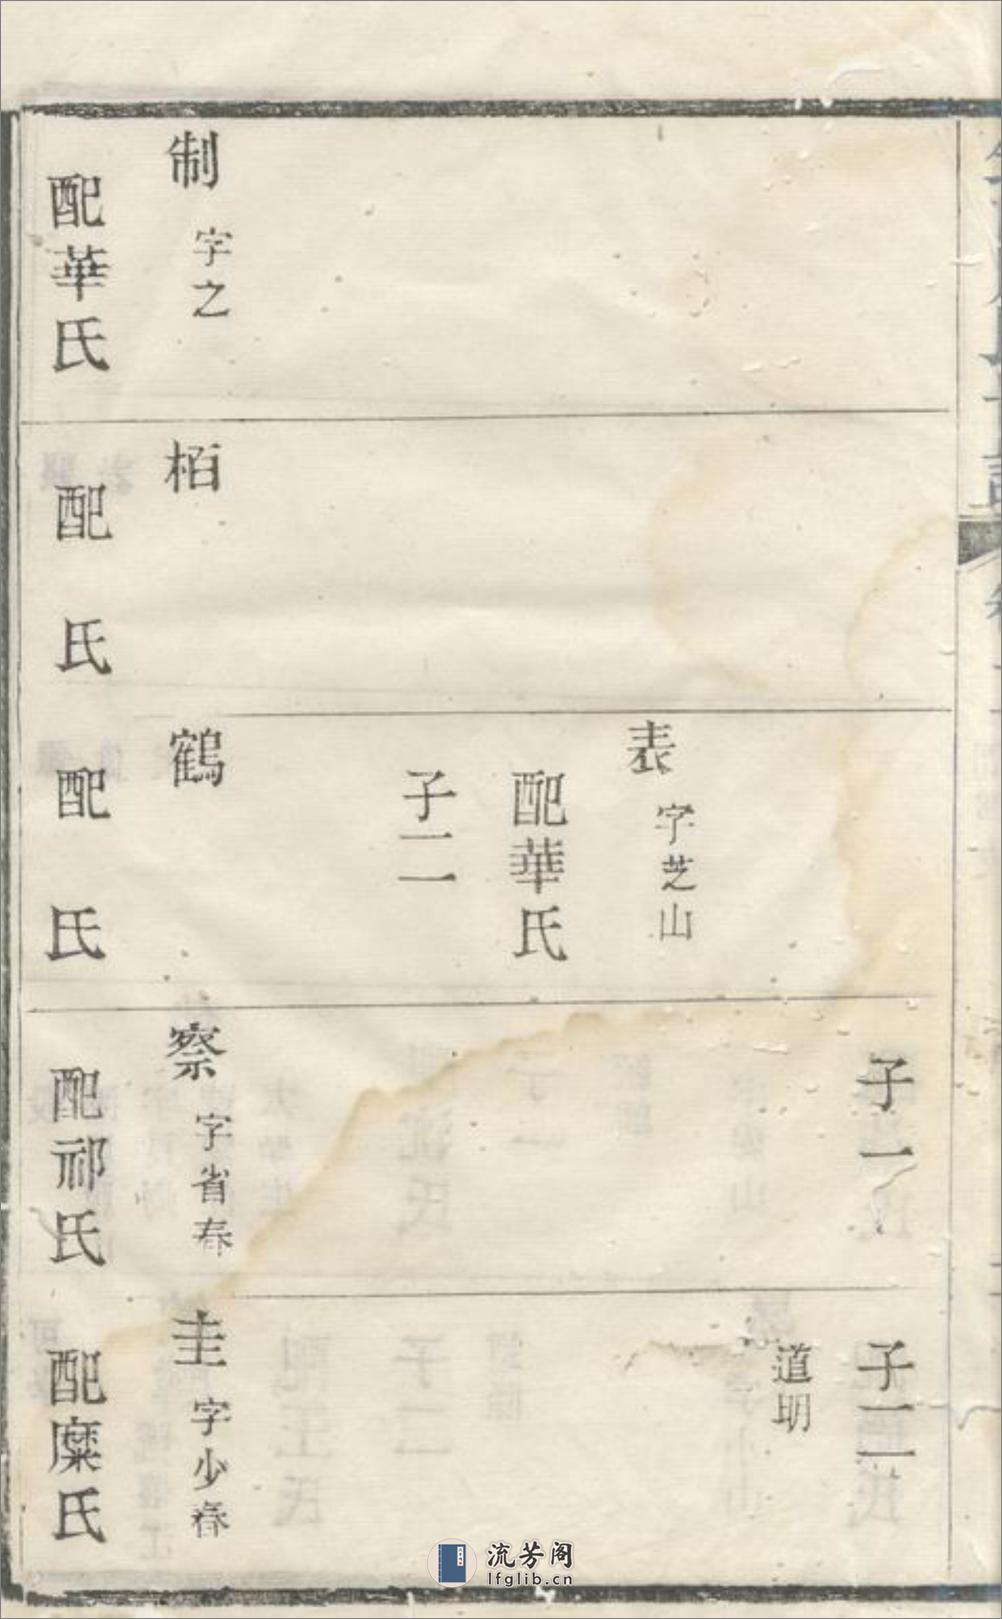 制 字之
配華氏
栢
配 氏
表 字芝山
配華氏
子二
鶴
配 氏
子一
察 字省春
配祁氏
子二
道明
圭 字少春
配糜氏
流芳阁
lfglib.cn